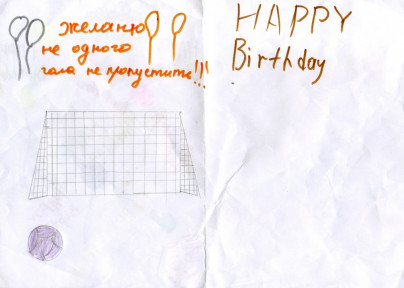 желаню
не одного
гала не пропустить!!!
HAPPY
Birthday